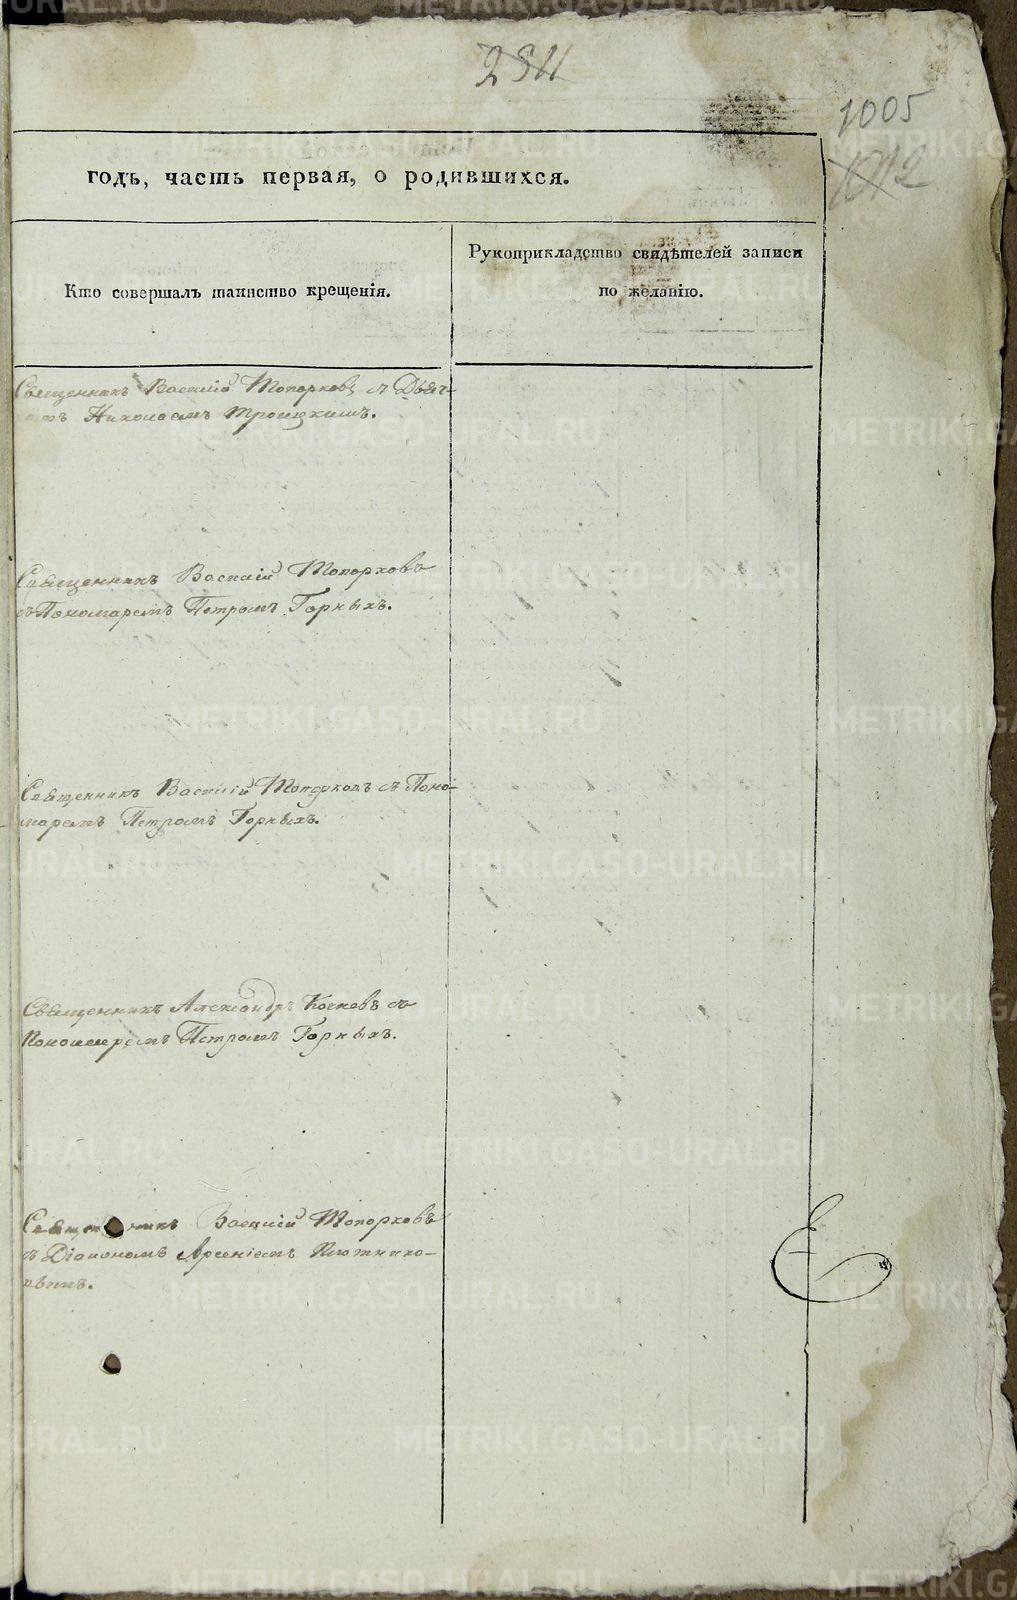 1005
годъ, часть первая, о родившихся.
Кто совершалъ таинство крещенія.
Рукоприкладство свидѣтелей записи
по желанію.
Священникъ Василій Топорковъ съ Дьяч-
Николаемъ Троицкимъ.
Священникъ Василій Топорковъ
съ Пономаремъ Петромъ Горныхъ.
Священникъ Василій Топорковъ съ Поно-
маремъ Петромъ Горныхъ.
Священникъ Александръ Кочневъ съ
Пономаремъ Петромъ Горныхъ.
Священникъ Василій Топорковъ
съ Діакономъ Арсеніемъ Плотнико-
вымъ.
METRIKI.GASO-URAL.RU